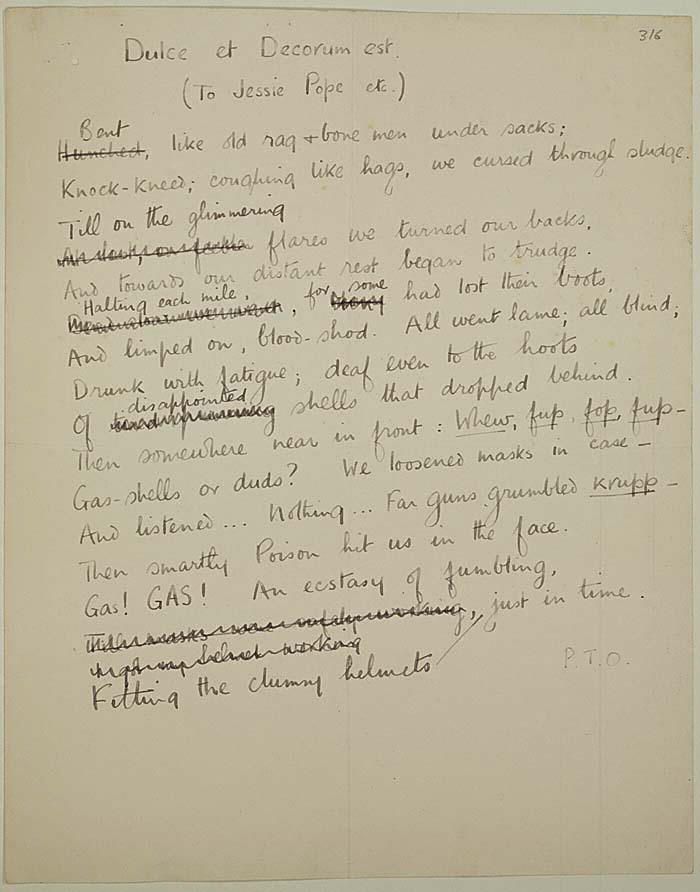 316
Dulce et Decorum est.
(To Jessie Pope etc.)
Bent
Hunched, like old rag + bone men under sacks;
Knock-kneed; coughing like hags, we cursed through sludge.
Till on the glimmering
flares we turned our backs,
And towards our distant rest began to trudge.
Halting each mile, for some
had lost their boots,
And limped on, blood-shod. All went lame; all blind;
Drunk with fatigue; deaf even to the hoots
disappointed
Of shells that dropped behind.
Then somewhere near in front: Whew, fup, fop, fup—
Gas-shells or duds? We loosened masks in case—
And listened... Nothing... Far guns grumbled Krupp—
Then smartly Poison hit us in the face.
Gas! GAS! An ecstasy of fumbling,
just in time.
Fitting the clumsy helmets
P.T.O.